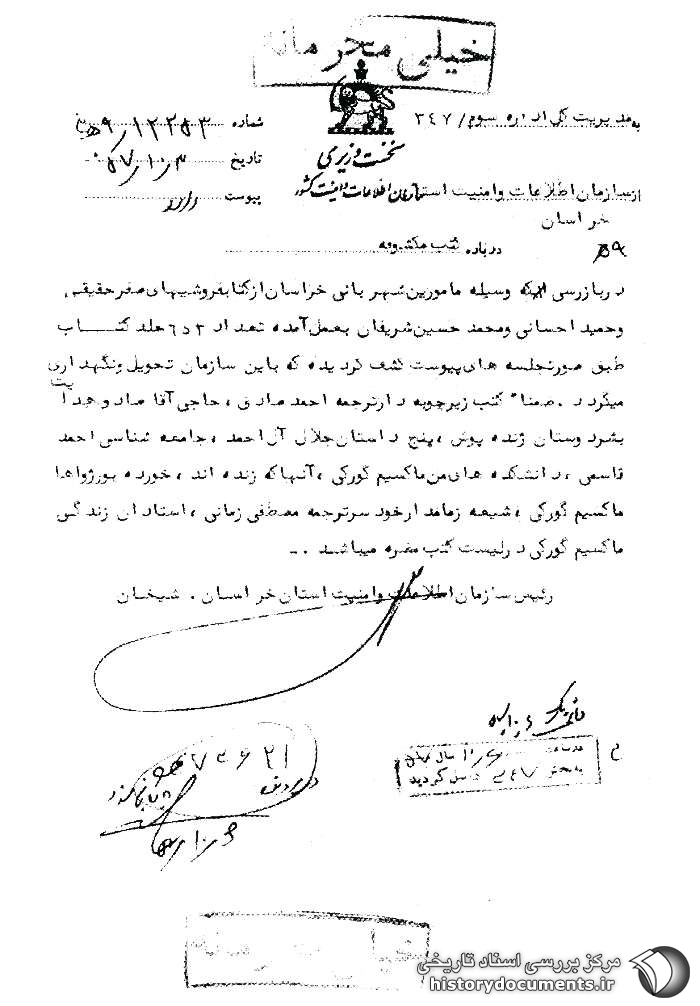 خیلی محرمانه
به مدیریت کل اداره سوم / ۳۴۷
شماره ۹/۱۲۲۵۳ ﻫ
نخست وزیری
تاریخ ۵۷/۱۰/۳
از سازمان اطلاعات و امنیت استان
سازمان اطلاعات و امنیت کشور
پیوست دارد
خراسان
درباره کتب مکشوفه
در بازرسی که وسیله مامورین شهربانی خراسان از کتابفروشیهای صفر حقیقی
و حمید احسانی و محمد حسین شریفان بعمل آمده تعداد ۶۵۲ جلد کتاب
طبق صورتجلسه های پیوست کشف گردیده که باین سازمان تحویل و نگهداری
میگردد . ضمنا" کتب زیرچوبه دار ترجمه احمد صادق ، حاجی آقا صادق هدایت
بشردوستان ژنده پوش ، پنج داستان جلال آل احمد ، جامعه شناسی احمد
قاسمی ، دانشکده های من ماکسیم گورکی ، آنهاکه زنده اند ، خورده بورژواها
ماکسیم گورکی ، شیعه زمامدار خودسر ترجمه مصطفی زمانی ، استادان زندگی
ماکسیم گورکی در لیست کتب مضره میباشد . ــ
رئیس سازمان اطلاعات و امنیت استان خراسان . شیخان
۱۰/۶
به بخش ۳۴۷ واصل گردید
مرکز بررسی اسناد تاریخی
historydocuments.ir